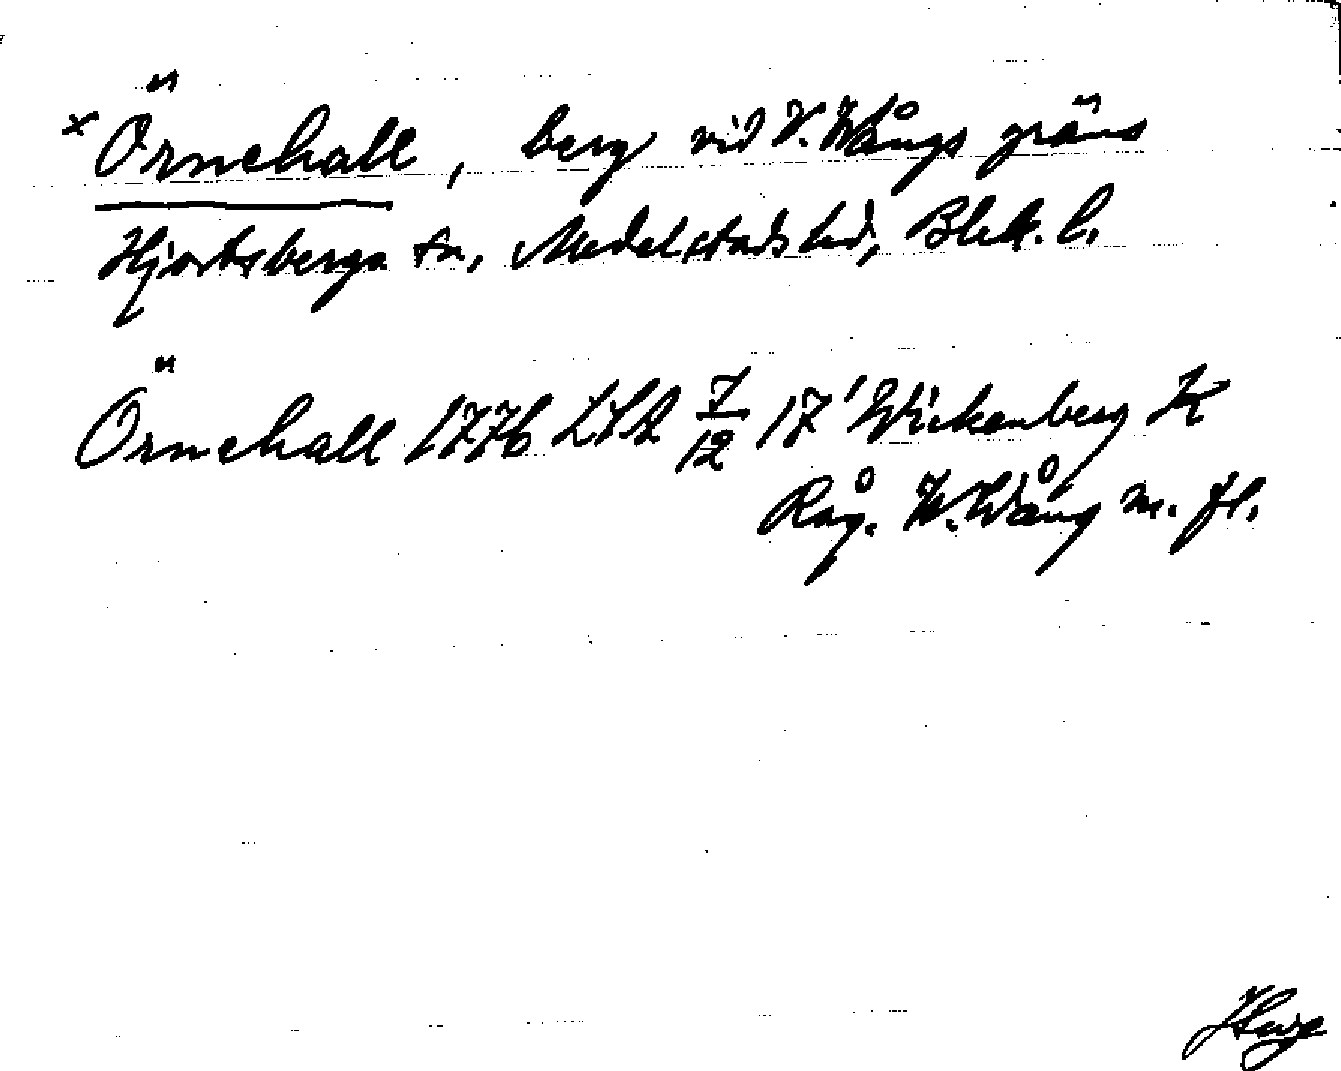 x Örnehall, berg vid V. Wångs gräns
Hjortsberga sn, Medelstads hd, Blek. l.
Örnehall 1776 LSA 7/12 17' Wickenberg K
Råg. W. Wång m. fl.